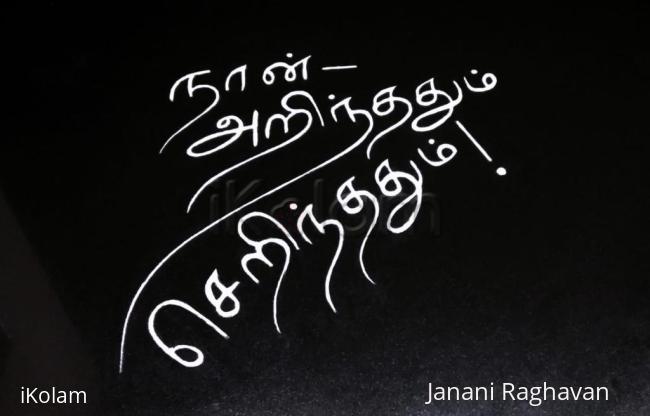 நான் –
அறிந்ததும்
செறிந்ததும்!
iKolam
iKolam
Janani Raghavan